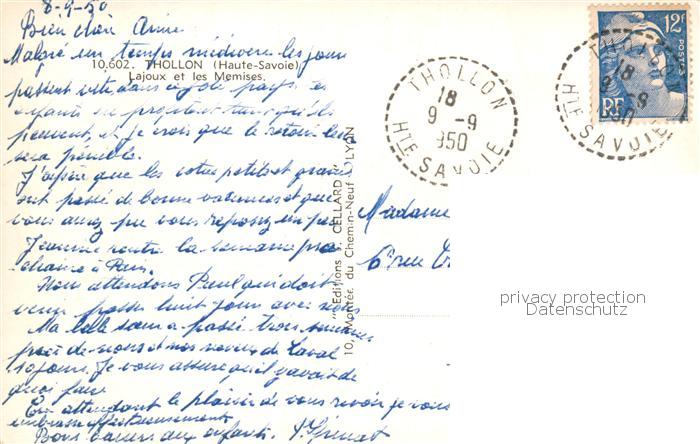 8-9-50
Bien chère Amie
Malgré un temps médiocre les jours
10.602. THOLLON (Haute-Savoie)
Lajoux et les Memises.
passent vite dans ce joli pays, les
enfants en profitent tant qu'ils
peuvent, et je crois que le retour
sera pénible.
J'espère que les votre petits et grands
ont passé de bonne vacances et que
vous avez pu vous reposez un peu
Jeannine rentre la semaine pro
chaine à Paris.
Nous attendons Paul qui doit
venir passer huit jours avec nous
Ma belle sœur a passé trois semaines
près de nous et nos neveux de Laval
10 jours. Je vous assure qu'il y avait de
quoi faire
En attendant le plaisir de vous revoir je vous
embrasse affectueusement
Bons baisers aux enfants.
"Editions CELLARD"
10, Montée du Chemin-Neuf LYON
THOLLON
18
9 -9
950
HTE SAVOIE
12F
POSTES
RF
THOLLON
18
9 -9
50
HTE SAVOIE
Madame
6 rue
privacy protection
Datenschutz